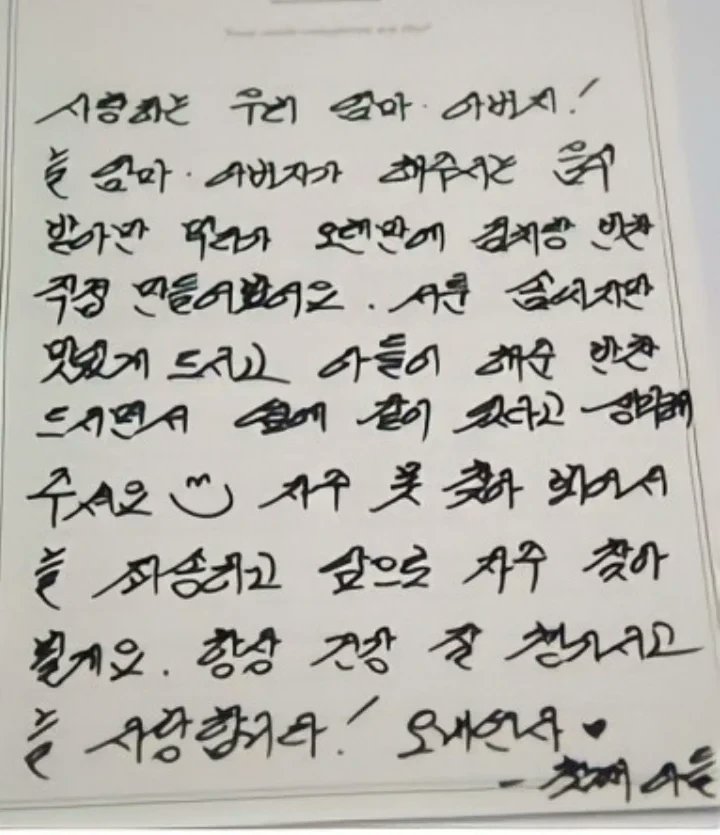 사랑하는 우리 엄마·아버지!
늘 엄마·아버지가 해주시는 음식
받아만 먹다가 오랜만에 김치랑 반찬
직접 만들어봤어요. 서툰 솜씨지만
맛있게 드시고 아들이 해준 반찬
드시면서 옆에 같이 있다고 생각해
주세요 자주 못 찾아 봬어서
늘 죄송하고 앞으로 자주 찾아
뵐게요. 항상 건강 잘 챙기시고
늘 사랑합니다! 오래만나 ♥
- 첫째 아들